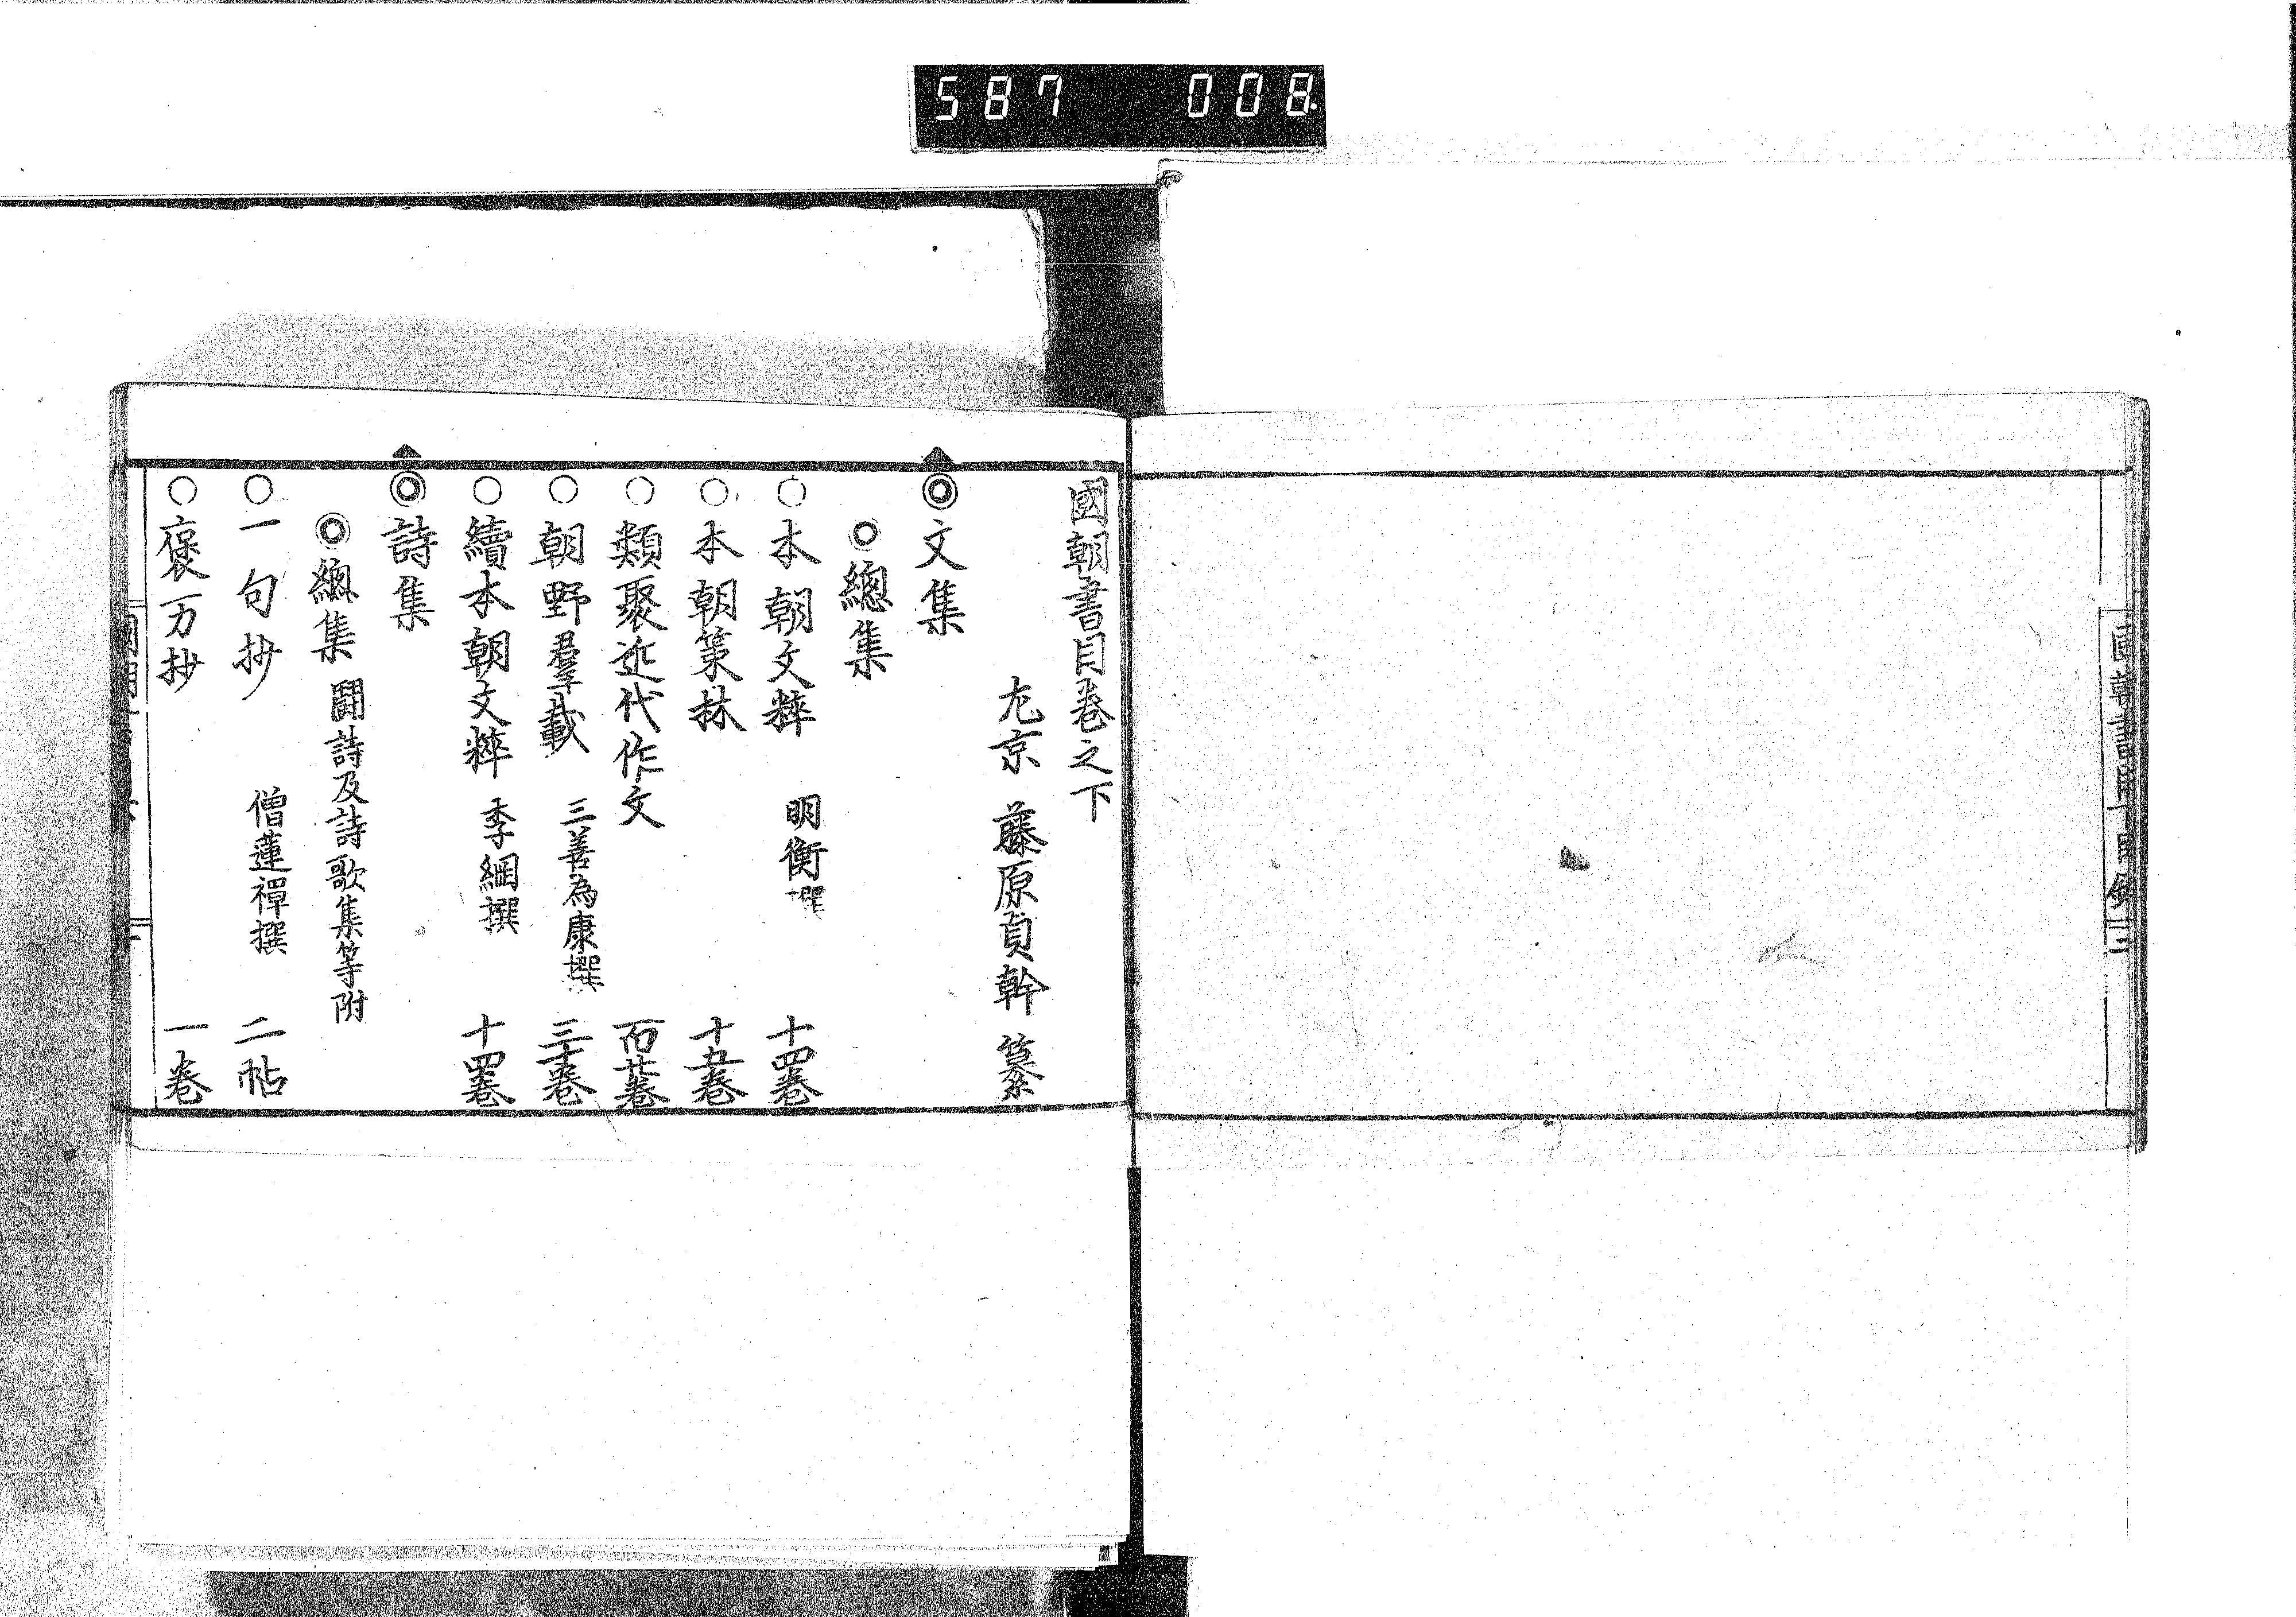 587 008
國朝書目卷之下
左京 藤原貞幹 纂
◎文集
◎總集
○本朝文粹 明衡撰 十四卷
○本朝策林 十五卷
○類聚近代作文 百廿卷
○朝野羣載 三善為康撰 三十卷
○續本朝文粹 季綱撰 十四卷
◎詩集
◎總集 鬪詩及詩歌集等附
○一句抄 僧蓮禪撰 二帖
○褒一力抄 一卷